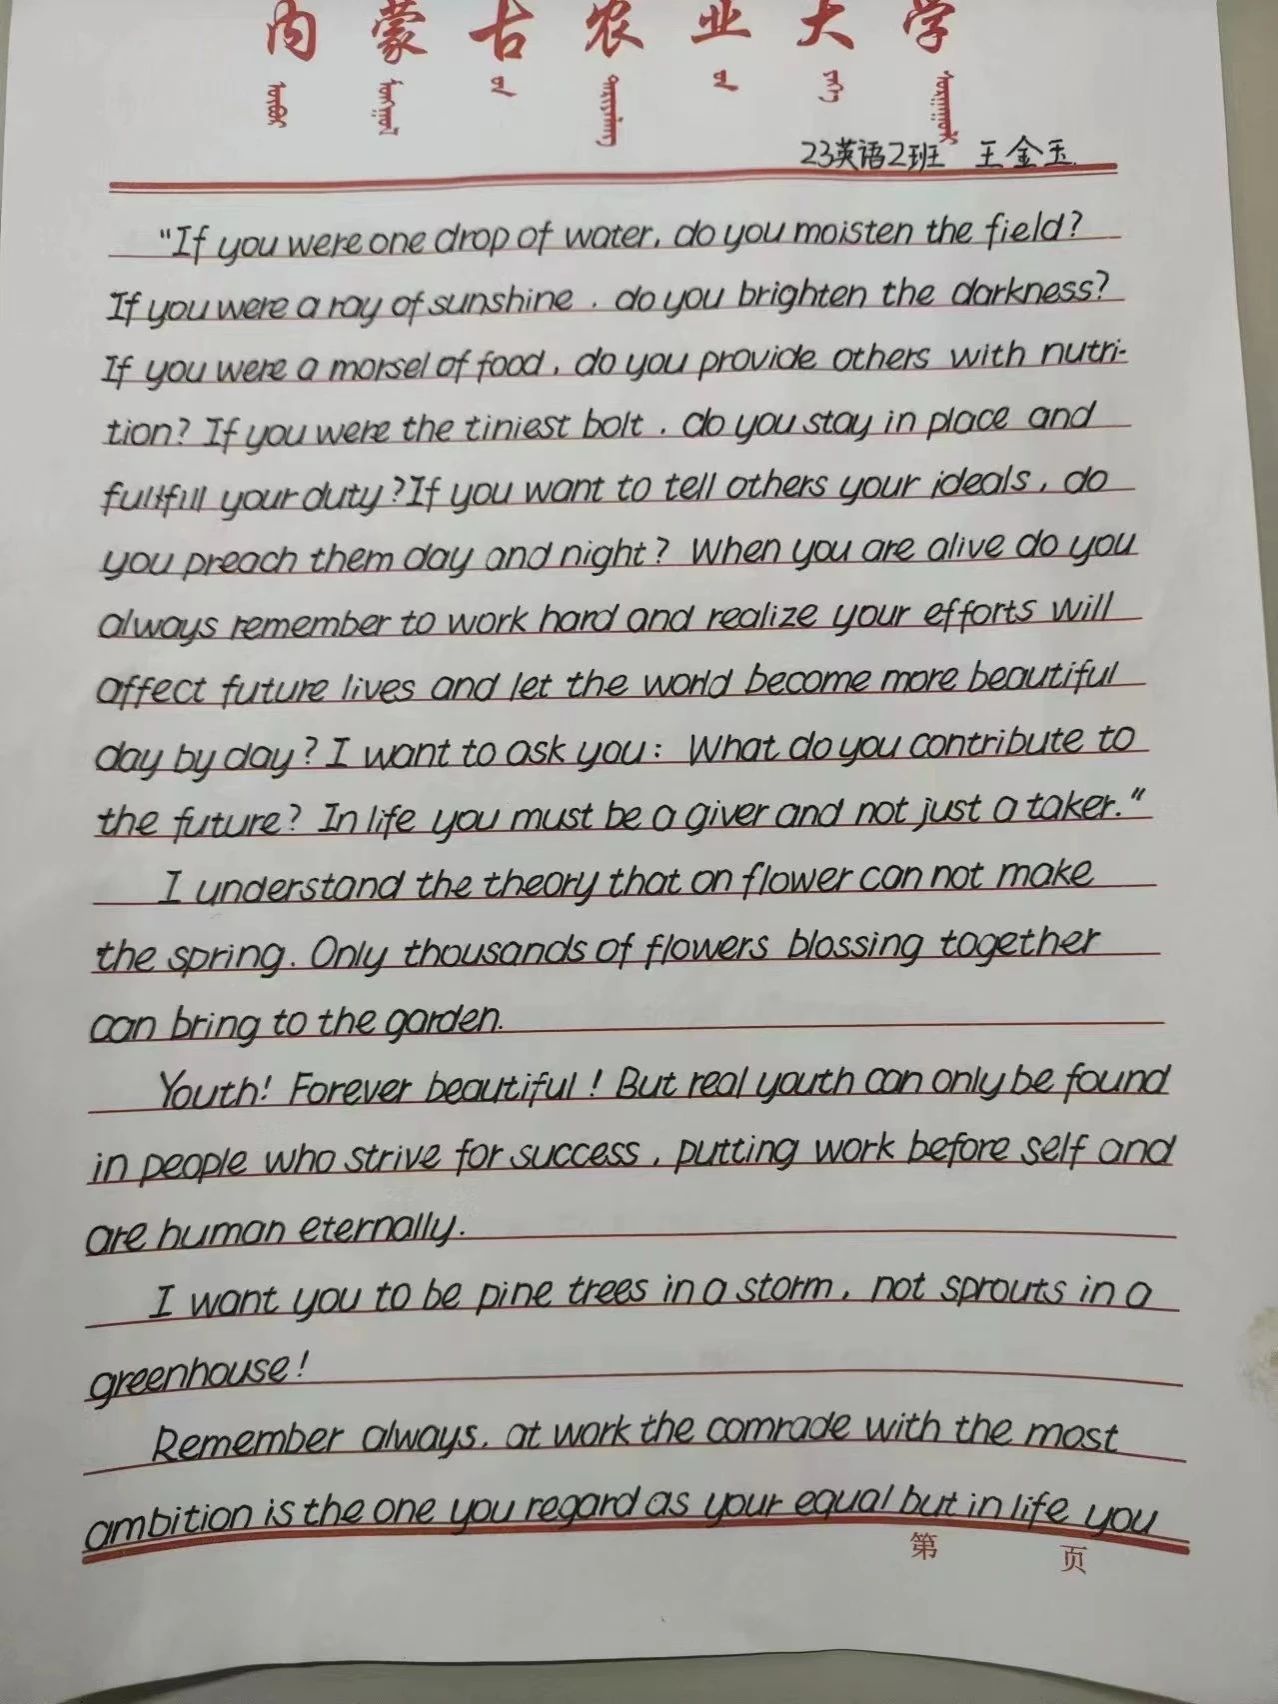 内蒙古农业大学
23英语2班 王金玉
"If you were one drop of water, do you moisten the field?
If you were a ray of sunshine, do you brighten the darkness?
If you were a morsel of food, do you provide others with nutri-
tion? If you were the tiniest bolt, do you stay in place and
fullfill your duty? If you want to tell others your ideals, do
you preach them day and night? When you are alive do you
always remember to work hard and realize your efforts will
affect future lives and let the world become more beautiful
day by day? I want to ask you: What do you contribute to
the future? In life you must be a giver and not just a taker."
I understand the theory that on flower can not make
the spring. Only thousands of flowers blossing together
can bring to the garden.
Youth! Forever beautiful! But real youth can only be found
in people who strive for success, putting work before self and
are human eternally.
I want you to be pine trees in a storm, not sprouts in a
greenhouse!
Remember always, at work the comrade with the most
ambition is the one you regard as your equal but in life you
第 页